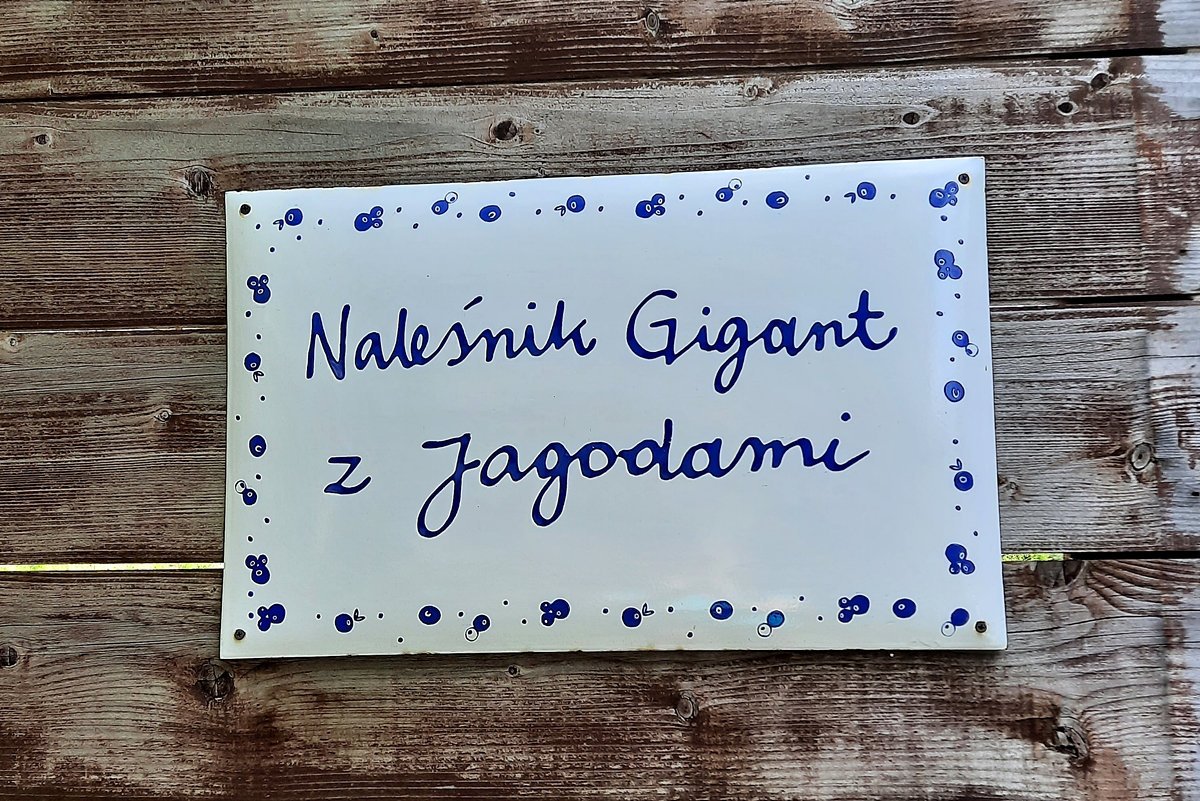 Naleśnik Gigant
z Jagodami